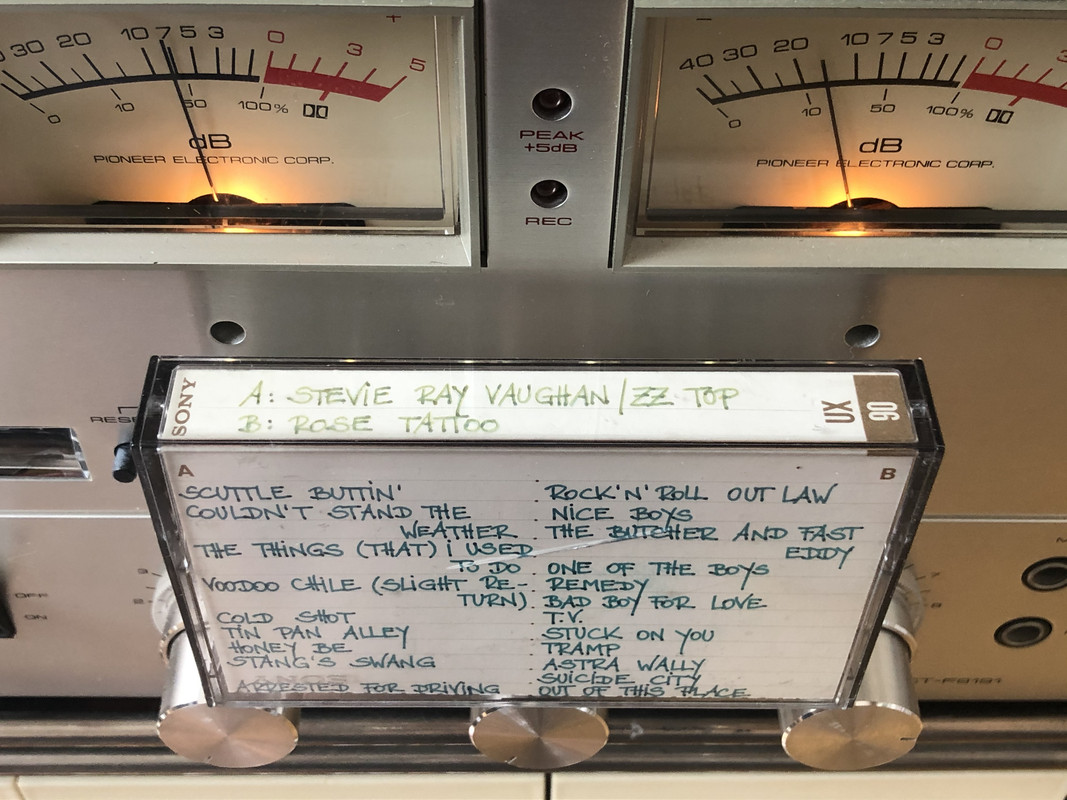 +
30 20 10 7 5 3 0 3 5
0 10 50 100%
dB
PIONEER ELECTRONIC CORP.
PEAK
+5dB
REC
–
40 30 20 10 7 5 3 0 3
0 10 50 100%
dB
PIONEER ELECTRONIC CORP.
RESE
SONY
A: STEVIE RAY VAUGHAN/ZZ TOP
B: ROSE TATTOO
UX 90
A
SCUTTLE BUTTIN'
COULDN'T STAND THE
WEATHER
THE THINGS (THAT) I USED
TO DO
VOODOO CHILE (SLIGHT RE-
TURN)
COLD SHOT
TIN PAN ALLEY
HONEY BE
STANG'S SWANG
ARRESTED FOR DRIVING
B
ROCK'N'ROLL OUT LAW
NICE BOYS
THE BUTCHER AND FAST
EDDY
ONE OF THE BOYS
REMEDY
BAD BOY FOR LOVE
T.V.
STUCK ON YOU
TRAMP
ASTRA WALLY
SUICIDE CITY
OUT OF THIS PLACE
3
2
OFF
ON
7
8
M
CT-F9191